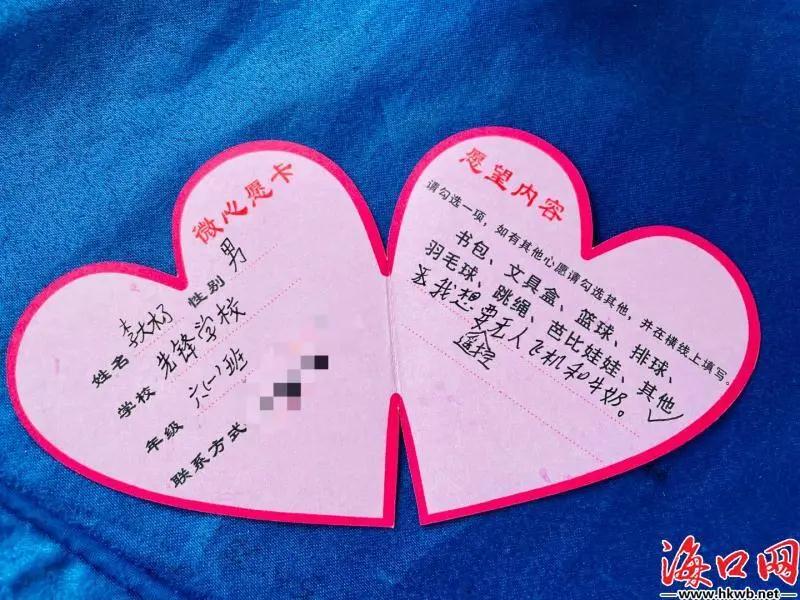 微心愿卡
姓名 李大杨 性别 男
学校 先锋学校
年级 六(一)班
联系方式
愿望内容
请勾选一项，如有其他心愿请勾选其他，并在横线上填写。
书包、文具盒、篮球、排球、
羽毛球、跳绳、芭比娃娃、其他✓
我想要遥控无人飞机和牛奶。
海口网
www.hkwb.net